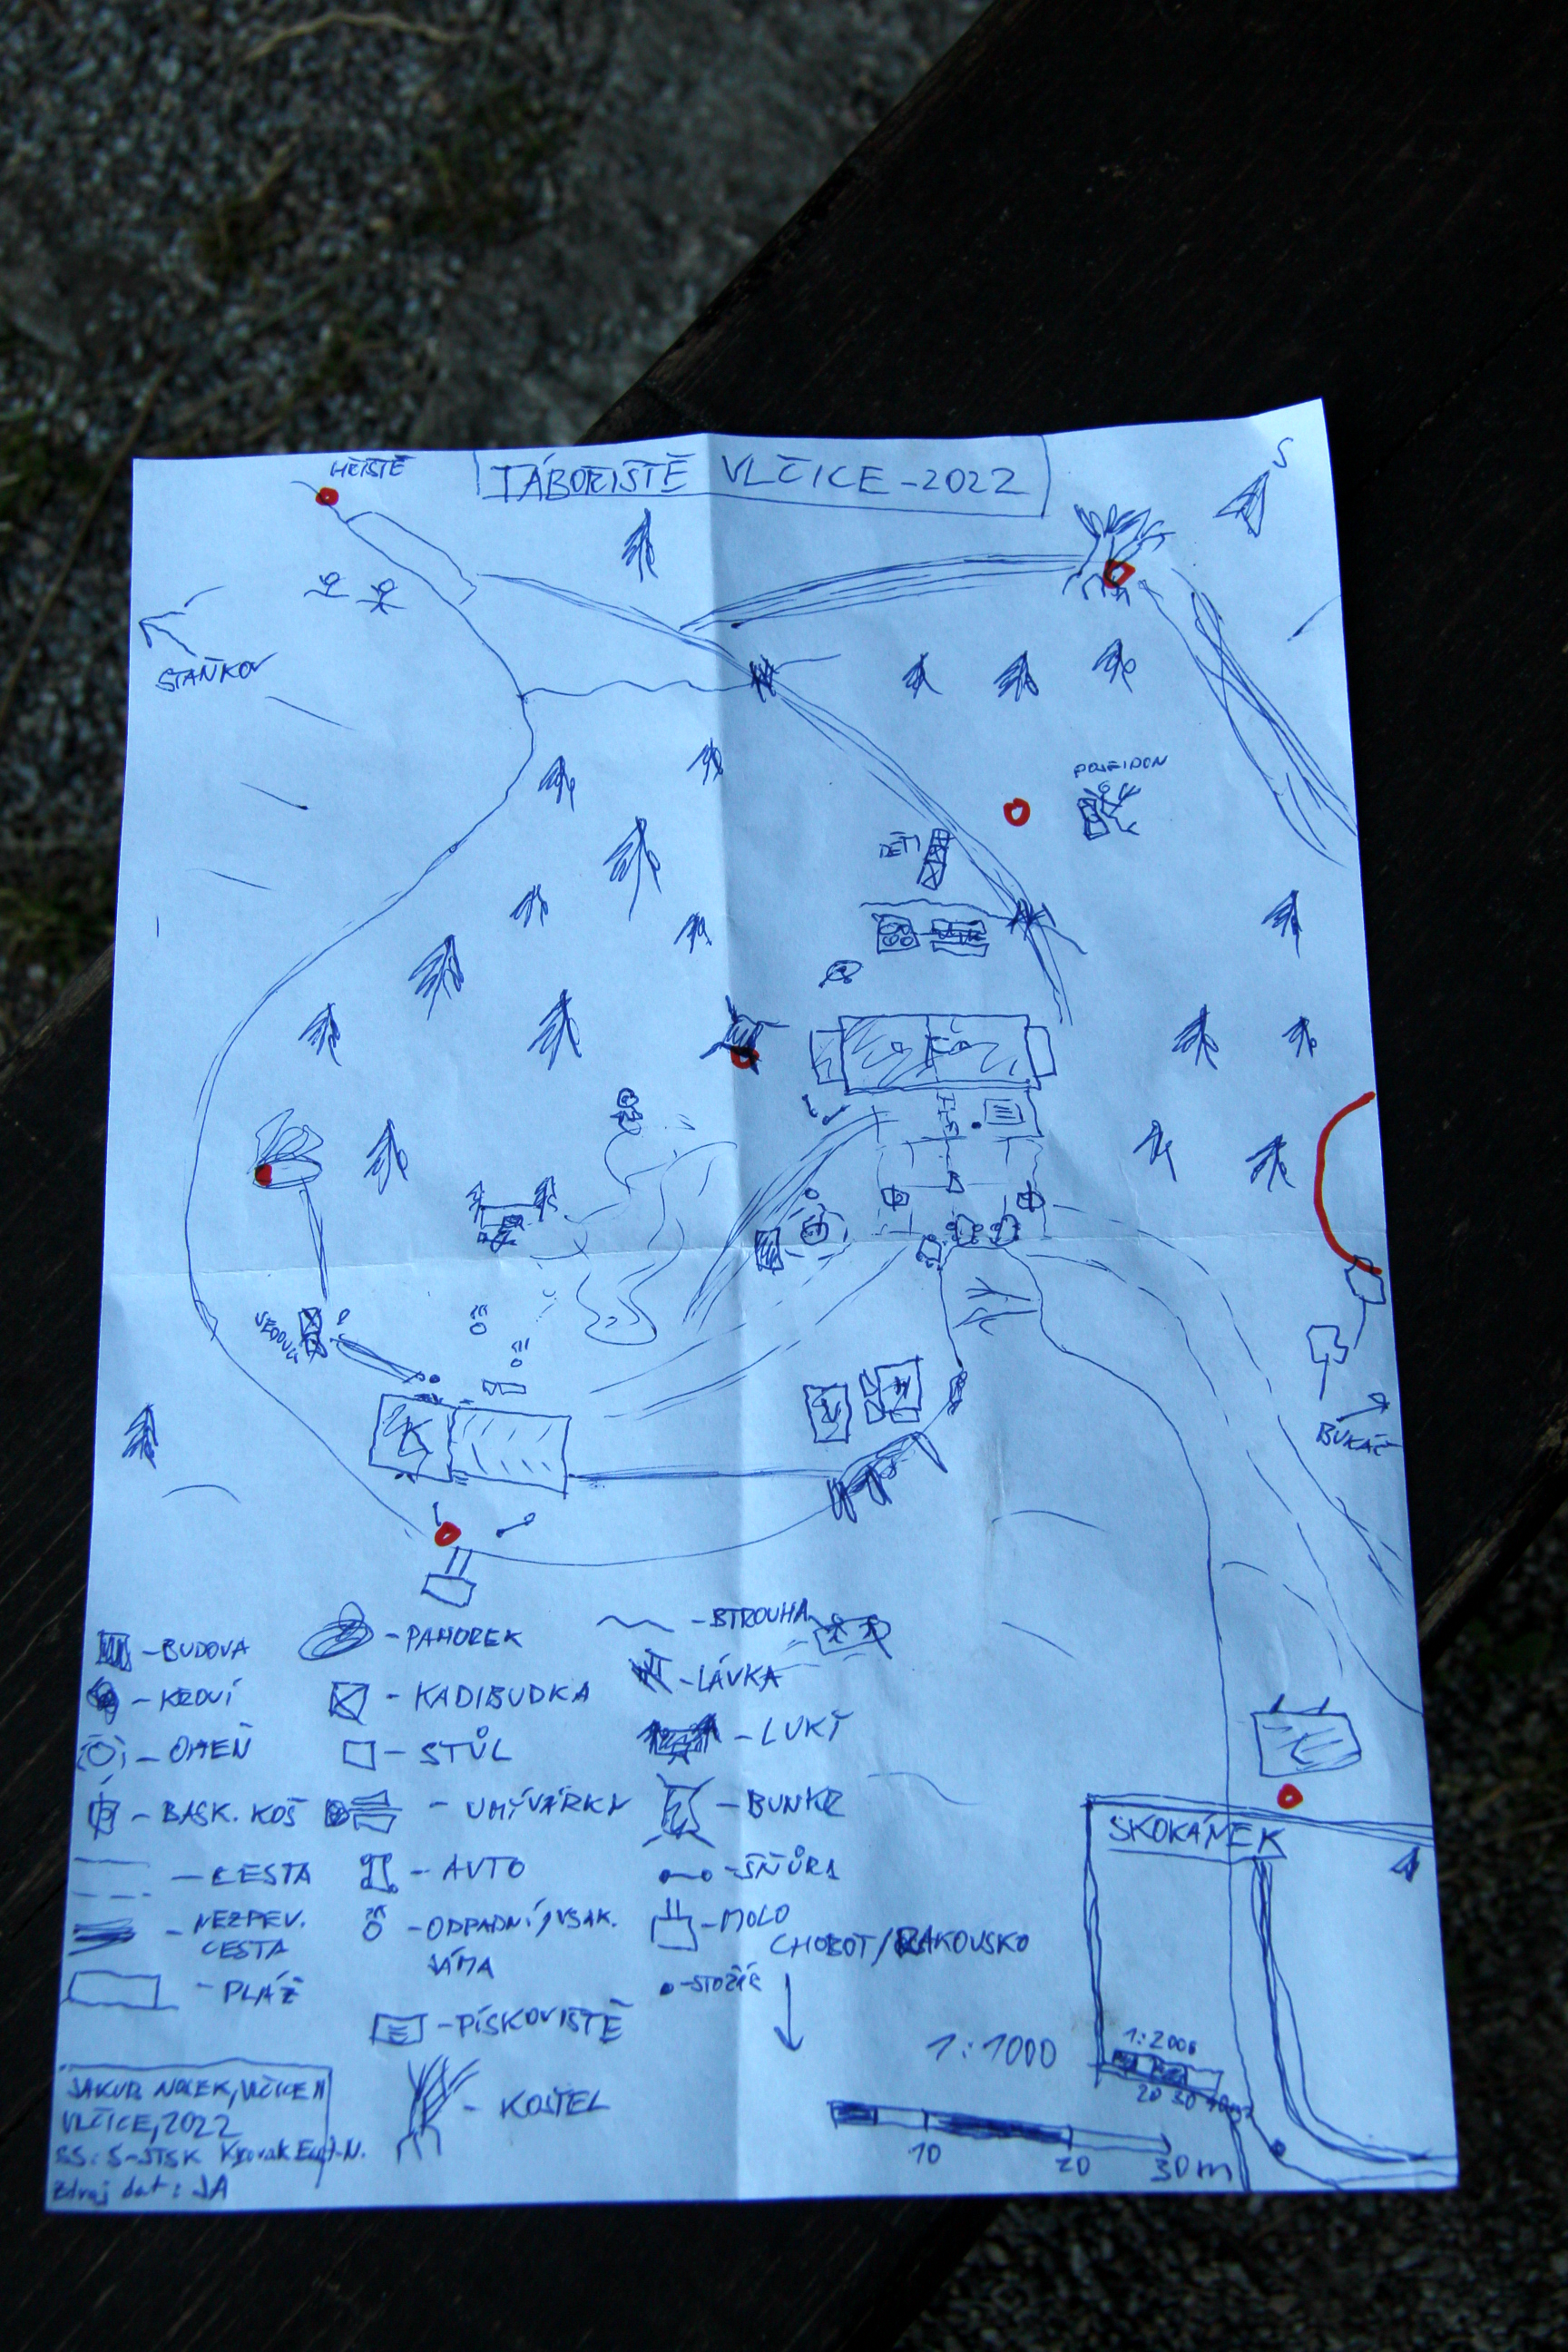 HŘIŠTĚ
TÁBOŘIŠTĚ VLČICE - 2022
S
STAŇKOV
POSEIDON
DĚTI
VEDOUCÍ
K
BUKAČ
- BUDOVA
- KŘOVÍ
- OHEŇ
- BASK. KOŠ
- CESTA
- NEZPEV.
CESTA
- PLÁŽ
- PAHOREK
- KADIBUDKA
- STŮL
- UMÝVÁRKY
- AUTO
- ODPADNÍ, VSAK.
JÁMA
- PÍSKOVIŠTĚ
- KOSTEL
- STROUHA
- LÁVKA
- LUKY
- BUNKR
- ŠŇŮRA
- MOLO
- STOŽÁR
CHOBOT/RAKOUSKO
SKOKÁNEK
1:1000
10 20 30m
1:2000
20 30
VLČICE, 2022
SS: S-JTSK Krovak East-N.
Zdroj dat: JA